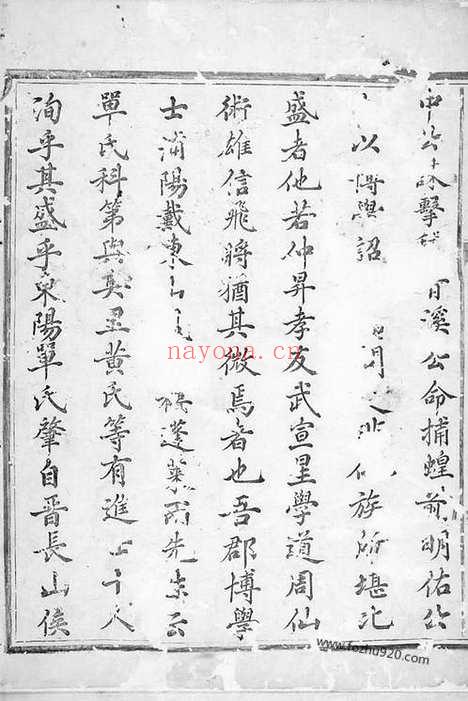 公擊溪公命捕蝗前明佑公
以詔族所堪比
盛者他若仲昇孝友武宣星學道周仙
術雄信飛將猶其微焉者也吾郡博學
士浦陽戴東蓬萊先生云
單氏科第與黃氏等有進士十人
洵乎其盛乎東陽單氏肇自晉長山侯
nayona.cn
www.fozhu920.com